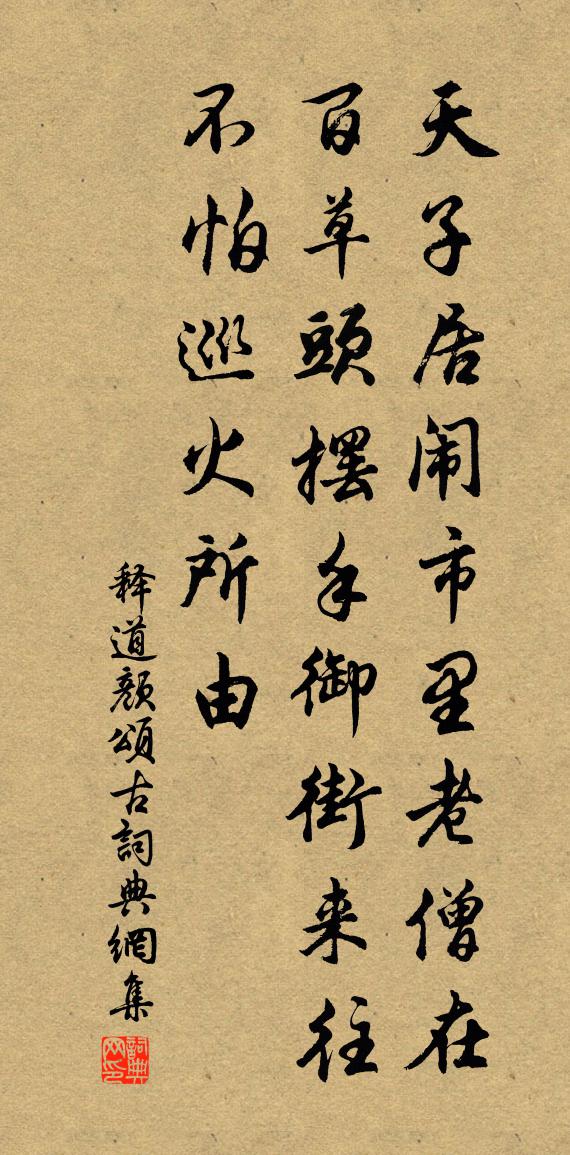 天子居闹市里老僧在
百草頭摆手御街来往
不怕巡火所由
释道颜頌古詞典網集
詞典网印